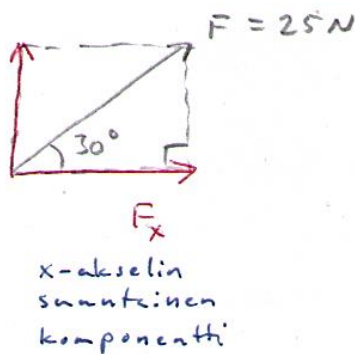 F = 25 N
30°
Fx
x-akselin
suuntainen
komponentti